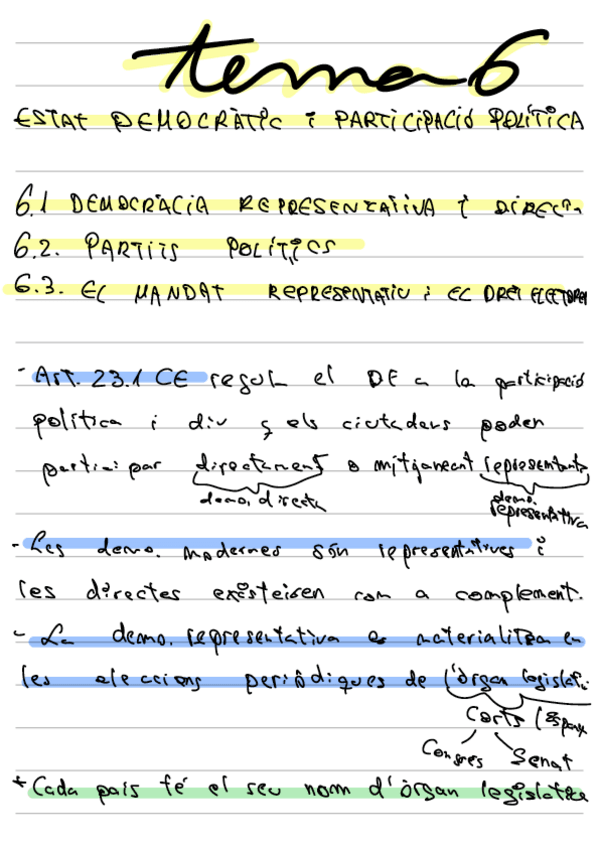 tema 6
ESTAT DEMOCRÀTIC i PARTICIPACIÓ POLÍTICA
6.1 DEMOCRÀCIA REPRESENTATIVA i DIRECTA
6.2. PARTITS POLÍTICS
6.3. EL MANDAT REPRESENTATIU i EL DRET ELECTORAL
- Art. 23.1 CE regula el DF a la participació
política i diu q els ciutadans poden
participar directament o mitjançant representants
demo. directa demo. representativa
- Les demo. modernes són representatives i
les directes existeixen com a complement.
- La demo. representativa es materialitza en
les eleccions periòdiques de l'òrgan legislatiu
Corts
Congres Senat
* Cada país té el seu nom d'òrgan legislatiu